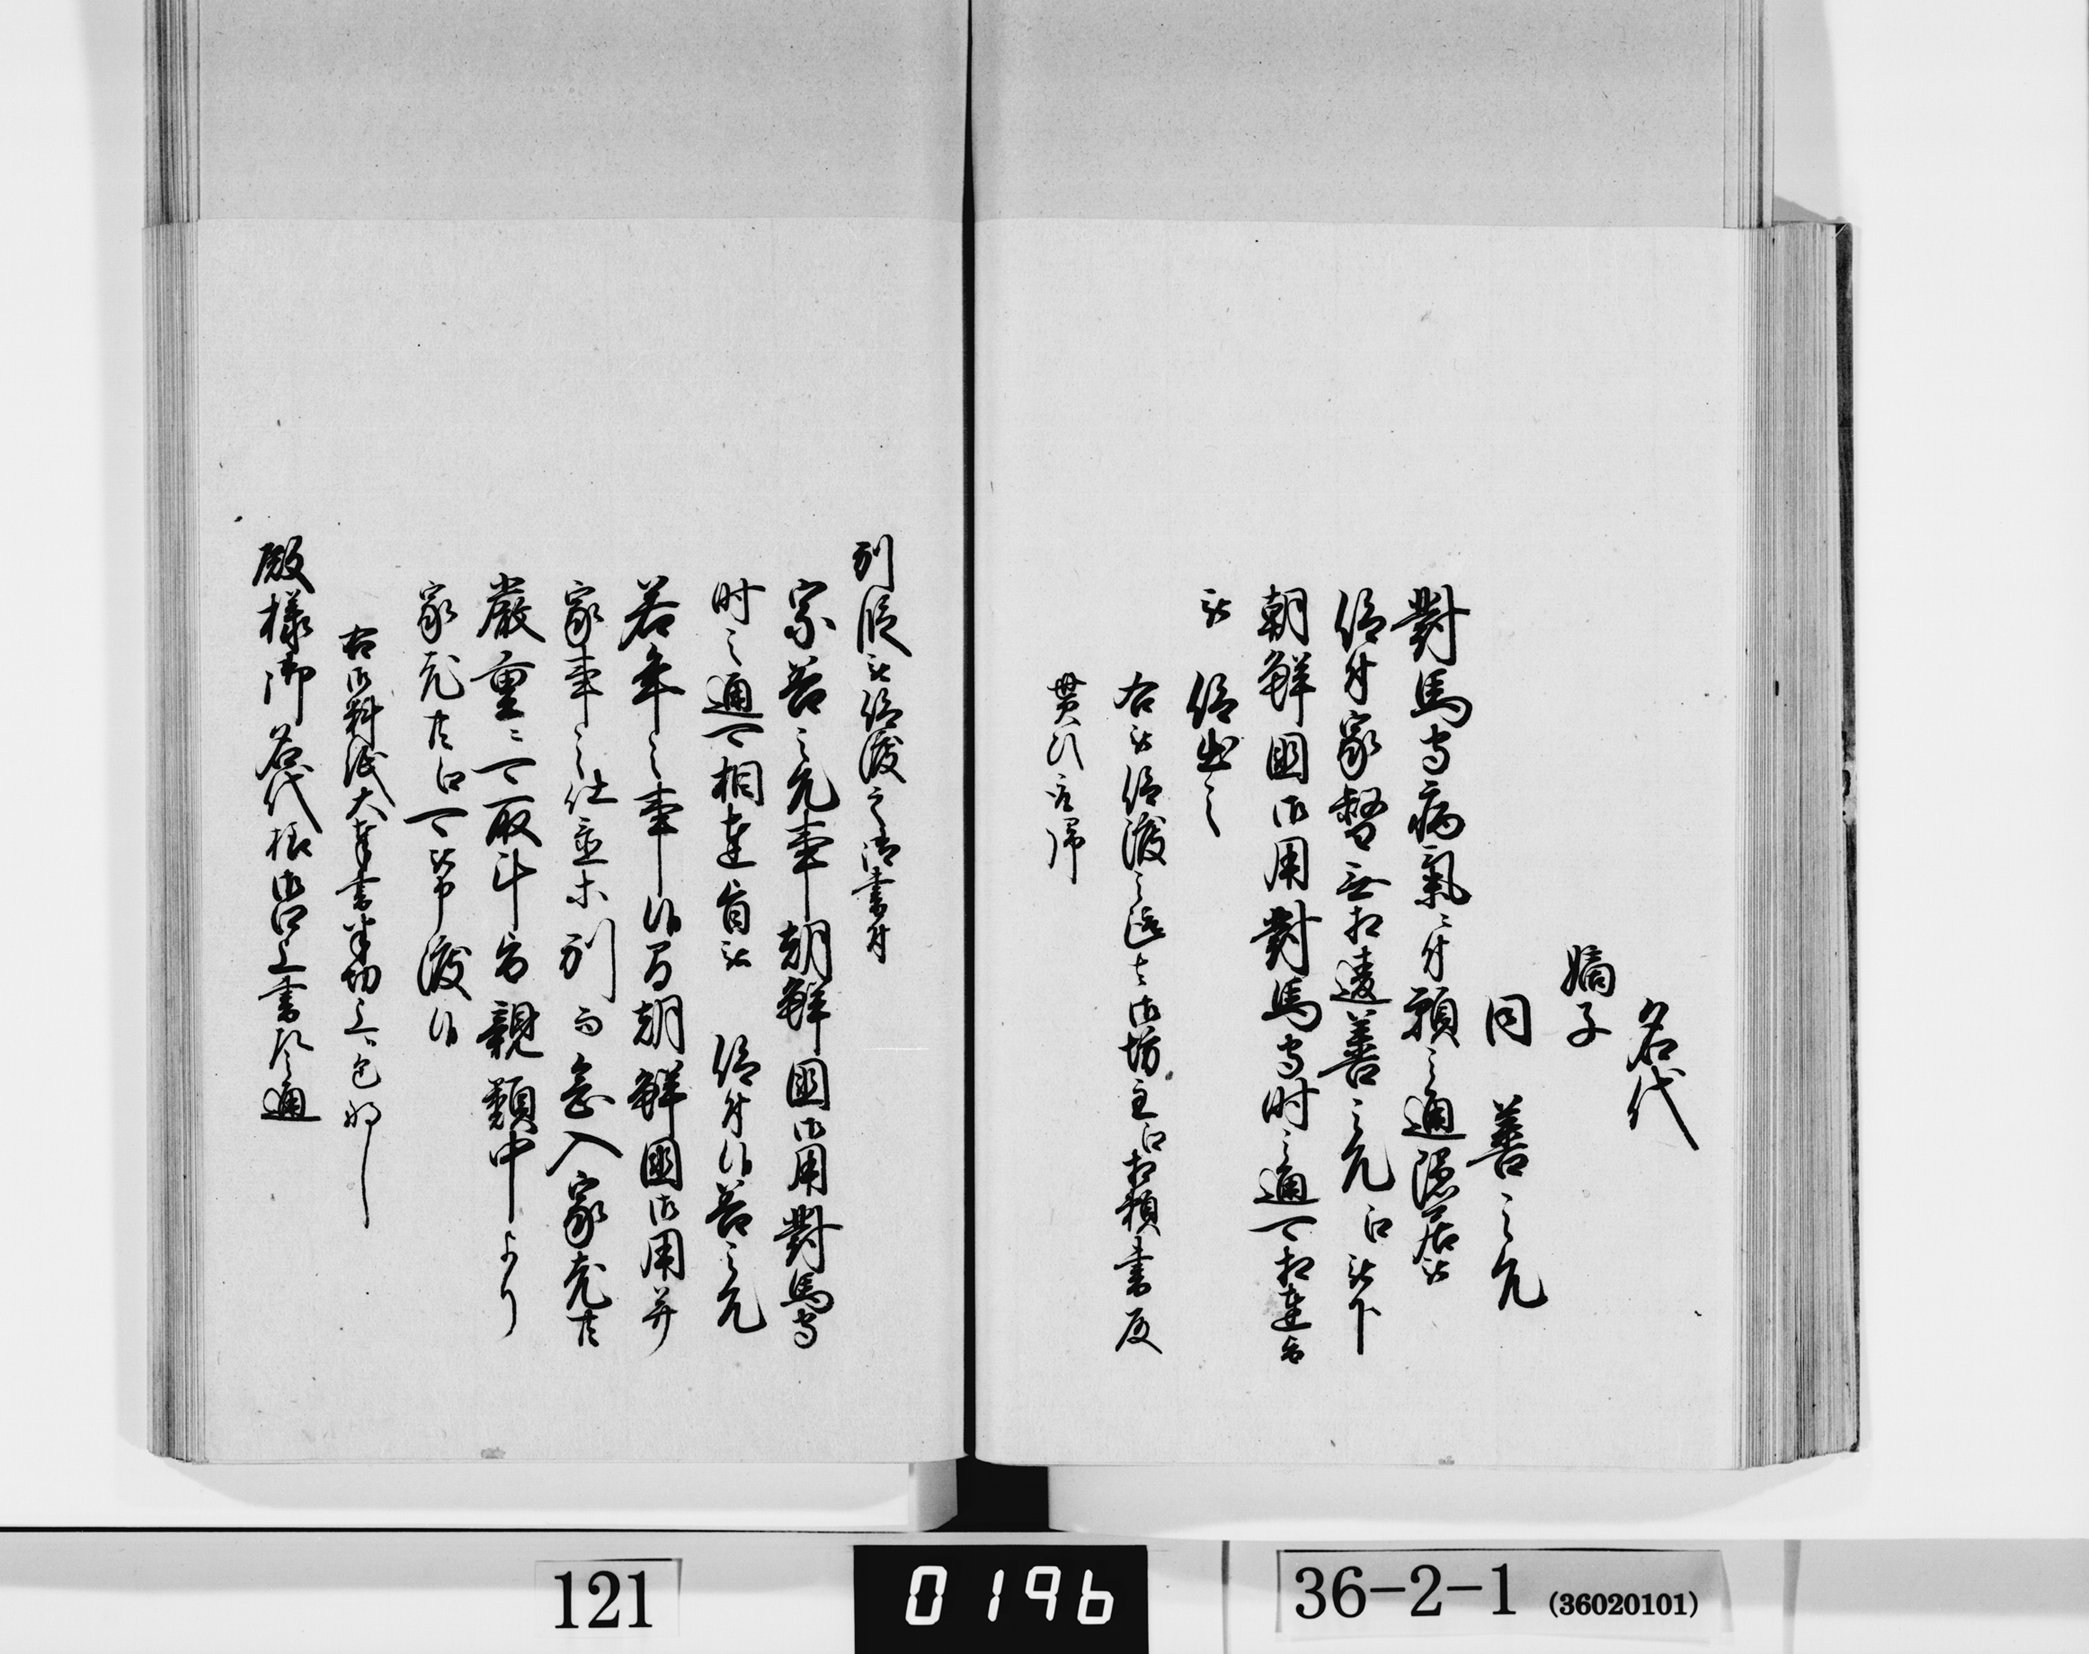 名代
嫡子
同 善之允
對馬守病氣ニ付願之通隠居被
仰付家督無相違善之允江被下
朝鮮国御用對馬守時之通可相達旨
被 仰出之
右被仰渡之趣者御坊主江相頼書取
貰ひ罷帰
別段被仰渡之御書付
宗善之允事朝鮮国御用對馬守
時之通可相達旨被 仰付候善之允
若年之事候間朝鮮国御用并
家事之仕置等別而念入家老共
厳重ニ可取斗旨親類中より
家老共江可被申渡候
右御料紙大奉書半切上包
殿様御名代様御口上書左之通
121
0196
36-2-1 (36020101)